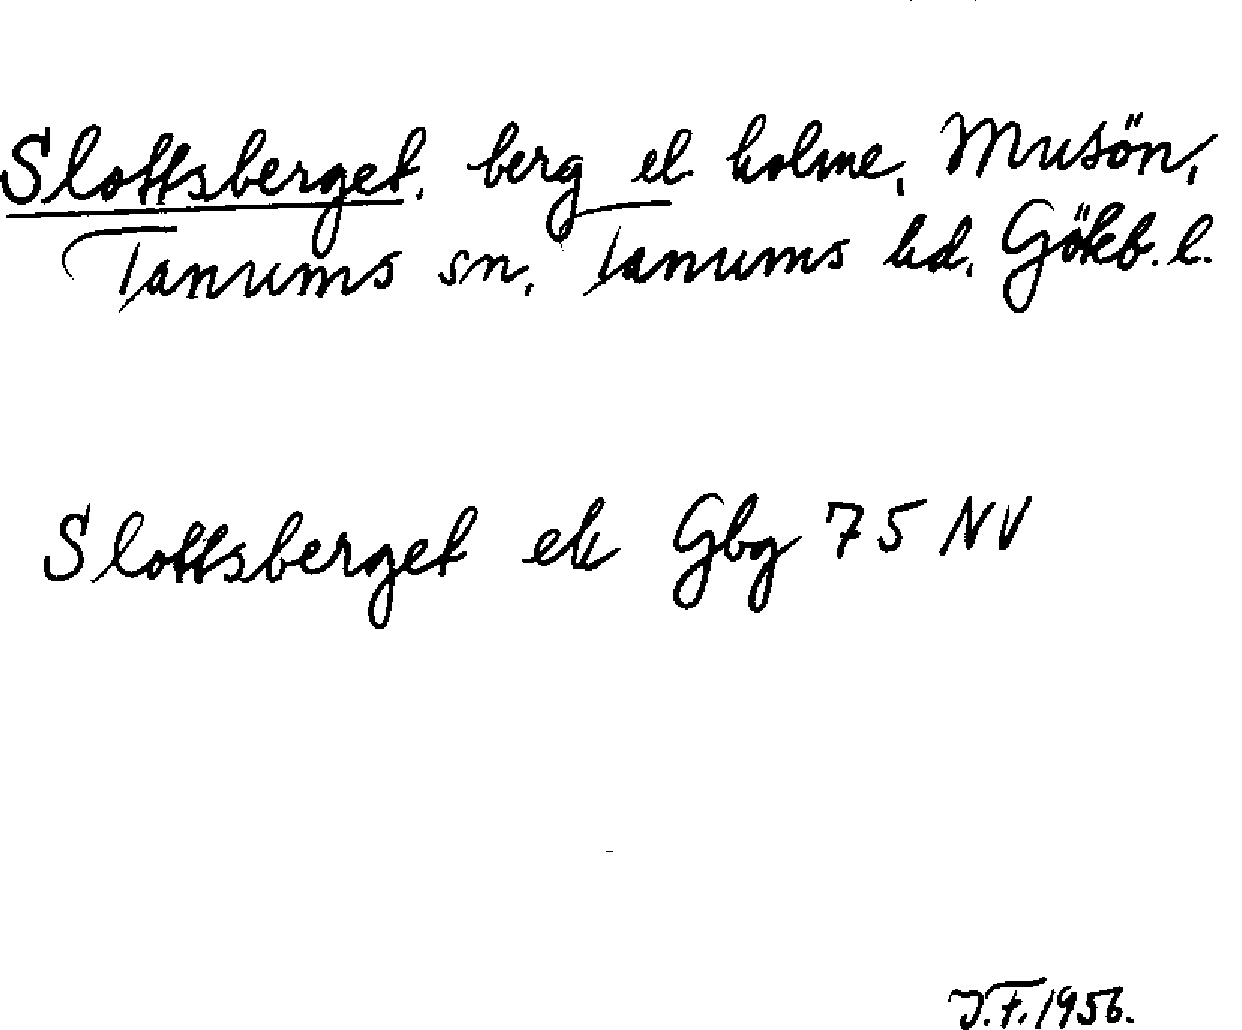 Slottsberget, berg el. holme, Musön,
Tanums sn, Tanums hd, Gökb. l.
Slottsberget ek Gbg 75 NV
J.F. 1956.